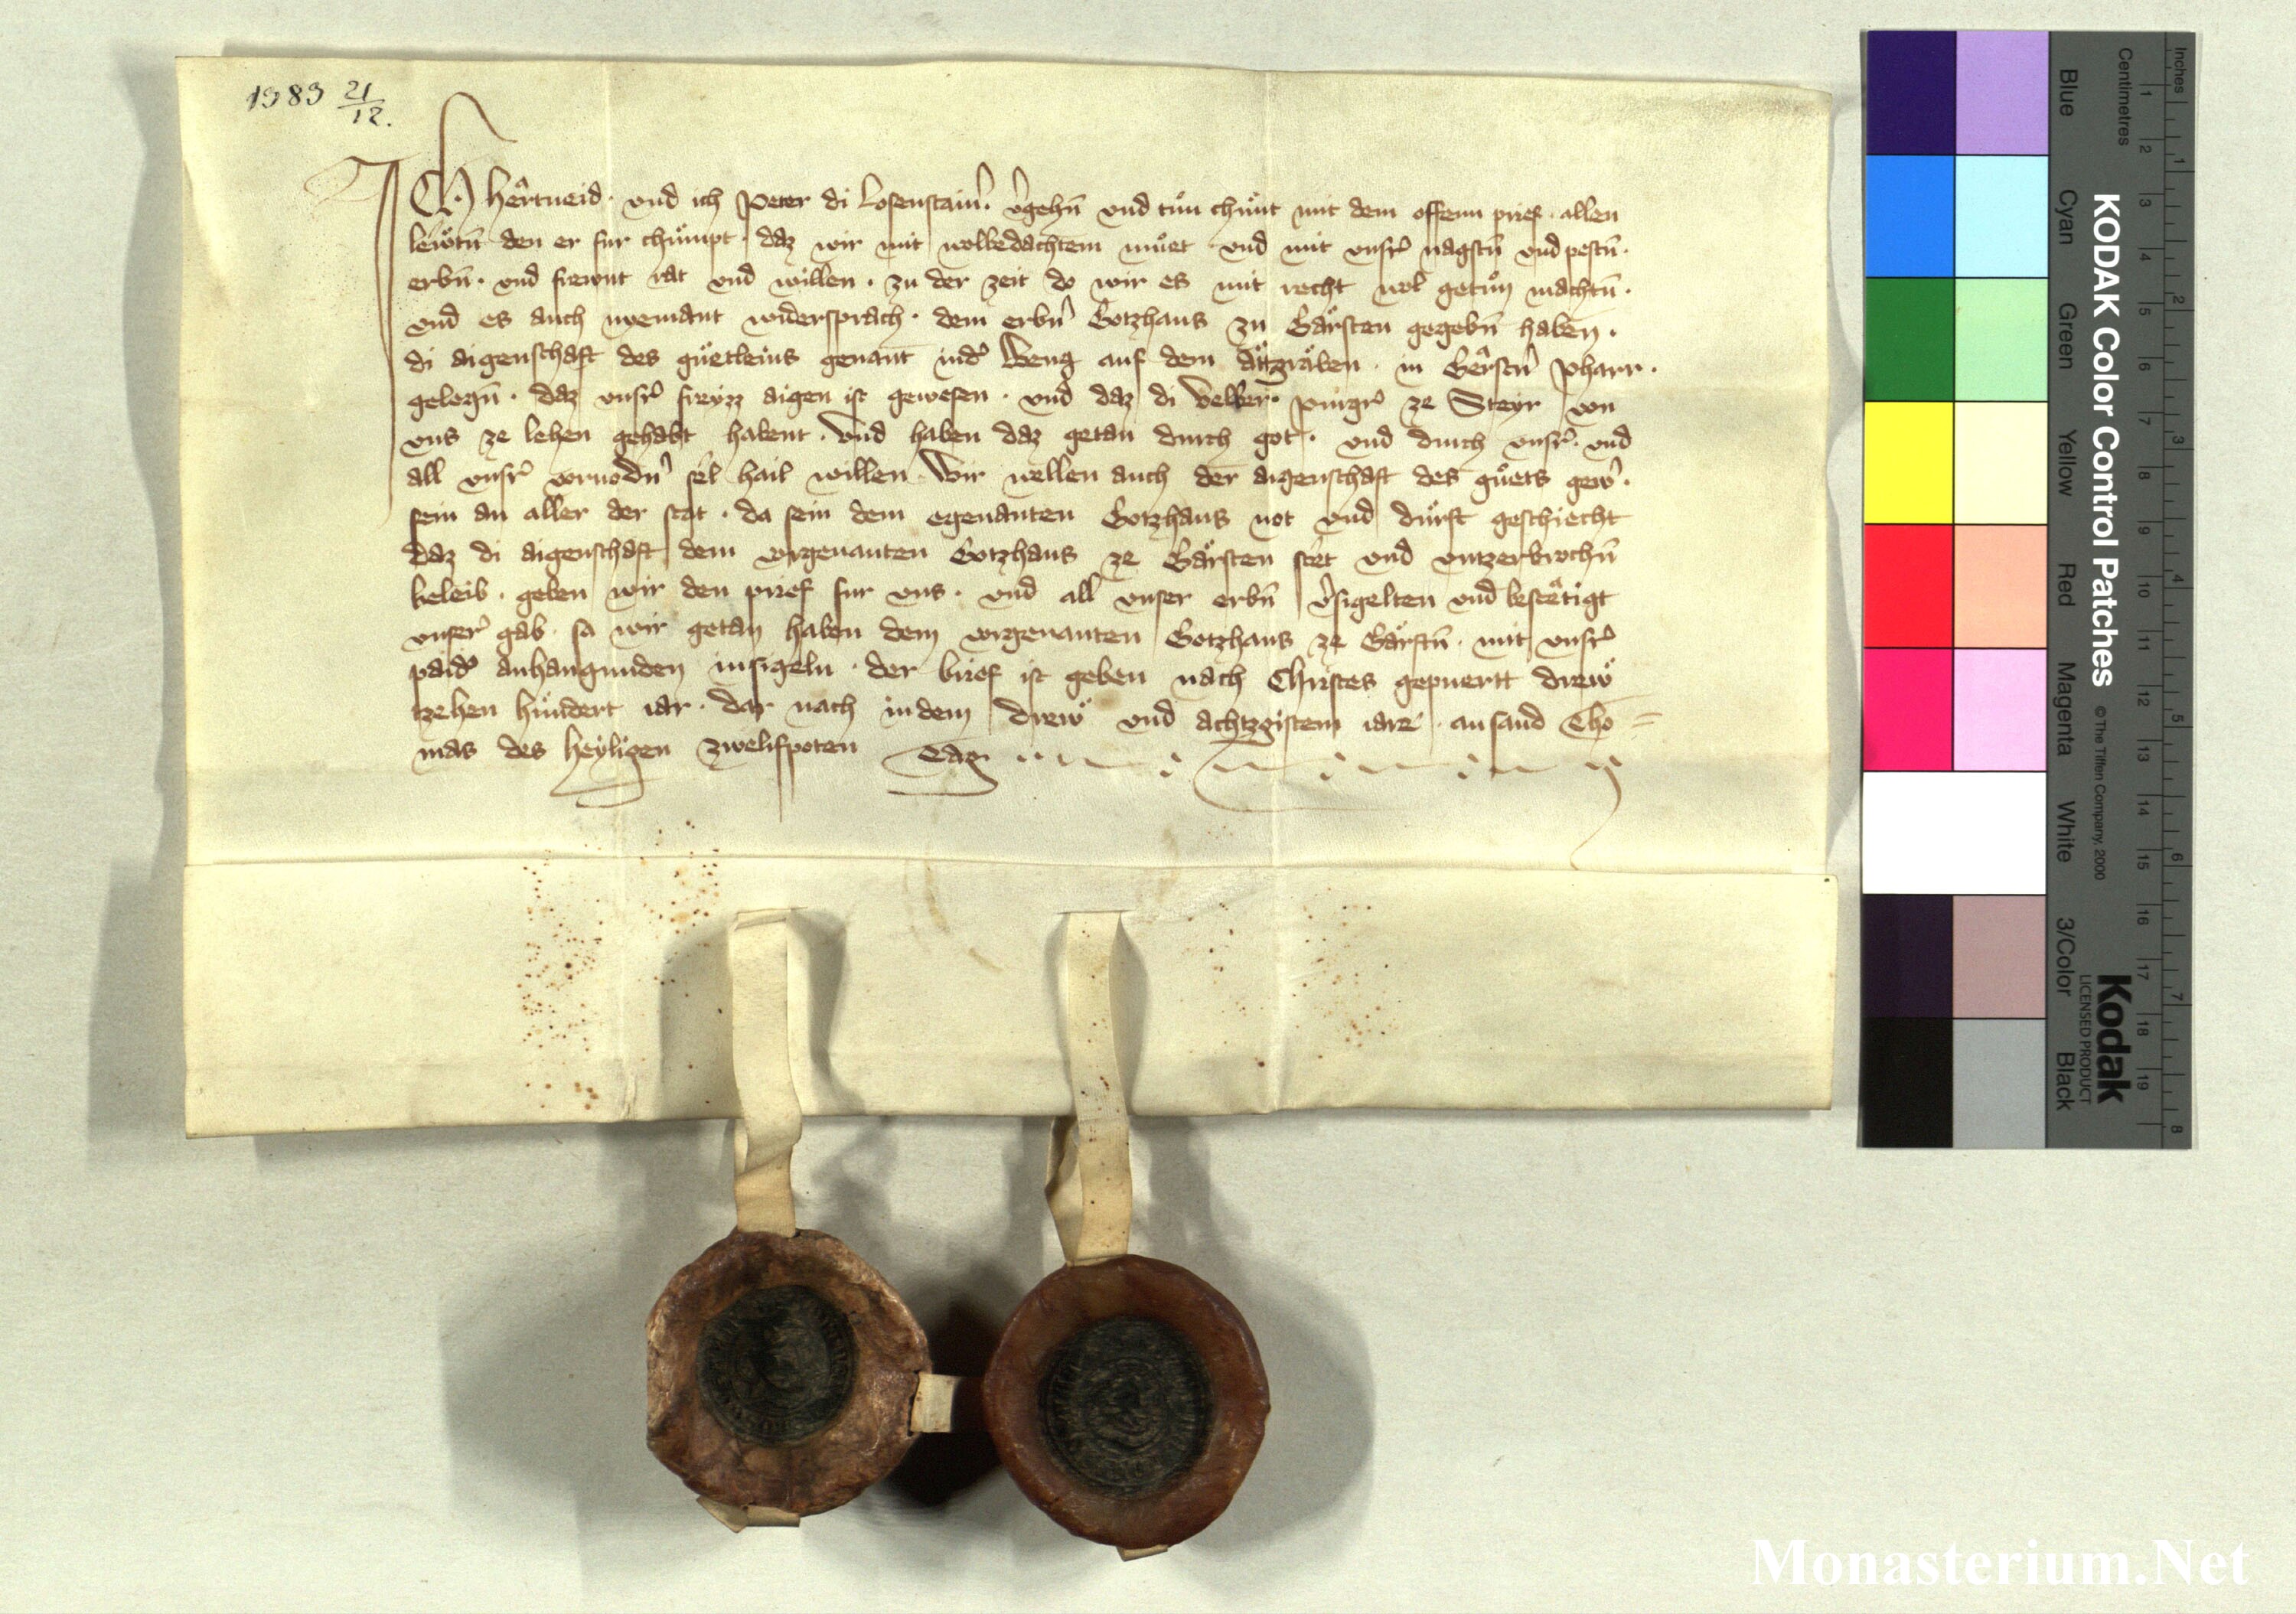 1383 21/12.
ICH Hêrtneid · vnd ich Peter di Losenstain̄ · v̄gehn̄ vnd tuͦn chuͦnt mit dem offenn prief · allen
lewͦtn̄ den er fur chuͦmpt · daz wir mit wolbedachtem muͦet · vnd mit vnsr̄ nagstn̄ vnd pestn̄ ·
erbn̄ · vnd frewnt rat vnd willen · zu der zeit do wir es mit recht wol getuͦn machtn̄ ·
vnd es auch niemant widersprach · dem erbn̄ Gotzhaus zu Gärsten gegebn̄ haben ·
di aigenschaft des guͤetleins genant ind̄ Weng auf dem in Gêrstn̄ Pharr ·
gelegn̄ · daz vnsr̄ freyzz aigen ist gewesen · vnd daz di purgr̄ ze Steyr von
vns ze lehen gehabt habent · vnd haben daz getan durch got · vnd durch vnsr̄ · vnd
all vnsr̄ vorvodn̄ sel hail willen · Wir wellen auch der aigenschaft des guͤets gew̄ ·
sein an aller der stat · da sein dem egenanten Gotzhaus not vnd durft geschiecht
daz di aigenschaft dem vorgenanten Gotzhaus ze Gärsten stet vnd vntzerbrochn̄
beleib · geben wir den prief fur vns · vnd all vnser erbn̄ v̄sigelten vnd bestêtigt
vnser̄ gab · so wir getan haben dem vorgenanten Gotzhaus ze Gärstn̄ · mit vnsr̄
paid̄ anhangunden insigeln · der brief ist geben nach Christes gepuertt drewͤ
tzehen hundert iar · dar nach in dem drewͤ vnd achtzgistem iare · an sand Tho =
mas des heyligen zwelifpoten Tag
KODAK Color Control Patches © The Tiffen Company, 2000
Kodak
LICENSED PRODUCT
Blue Cyan Green Yellow Red Magenta White 3/Color Black
Inches 1 2 3 4 5 6 7 8
Centimetres 1 2 3 4 5 6 7 8 9 10 11 12 13 14 15 16 17 18 19
Monasterium.Net